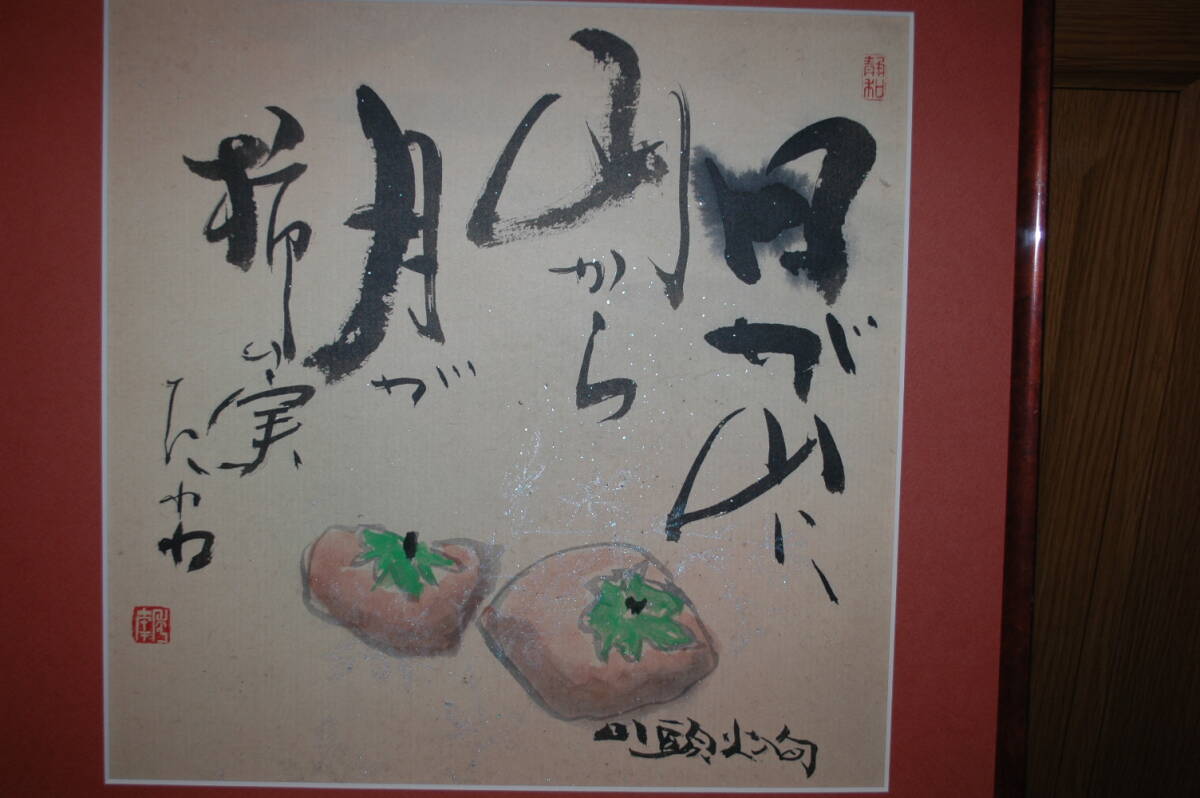 日が山に
山から
月が
柿の実
たわわ
山頭火句